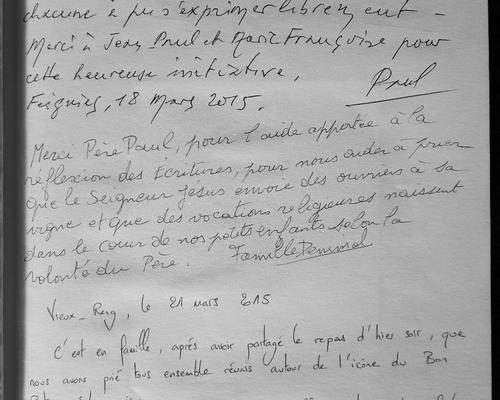 chacune a pu s'exprimer librement -
Merci à Jean Paul et Marie Françoise pour
cette heureuse initiative,
Paul
Feignies, 18 Mars 2015.
Merci Père Paul, pour l'aide apportée à la
réflexion des Écritures, pour nous aider à prier
que le Seigneur Jésus envoie des ouvriers à sa
vigne et que des vocations religieuses naissent
dans le cœur de nos petits enfants selon la
volonté du Père. Famille
Vieux-Reng, le 21 mars 2015
C'est en famille, après avoir partagé le repas d'hier soir, que
nous avons prié tous ensemble réunis autour de l'icône du Bon